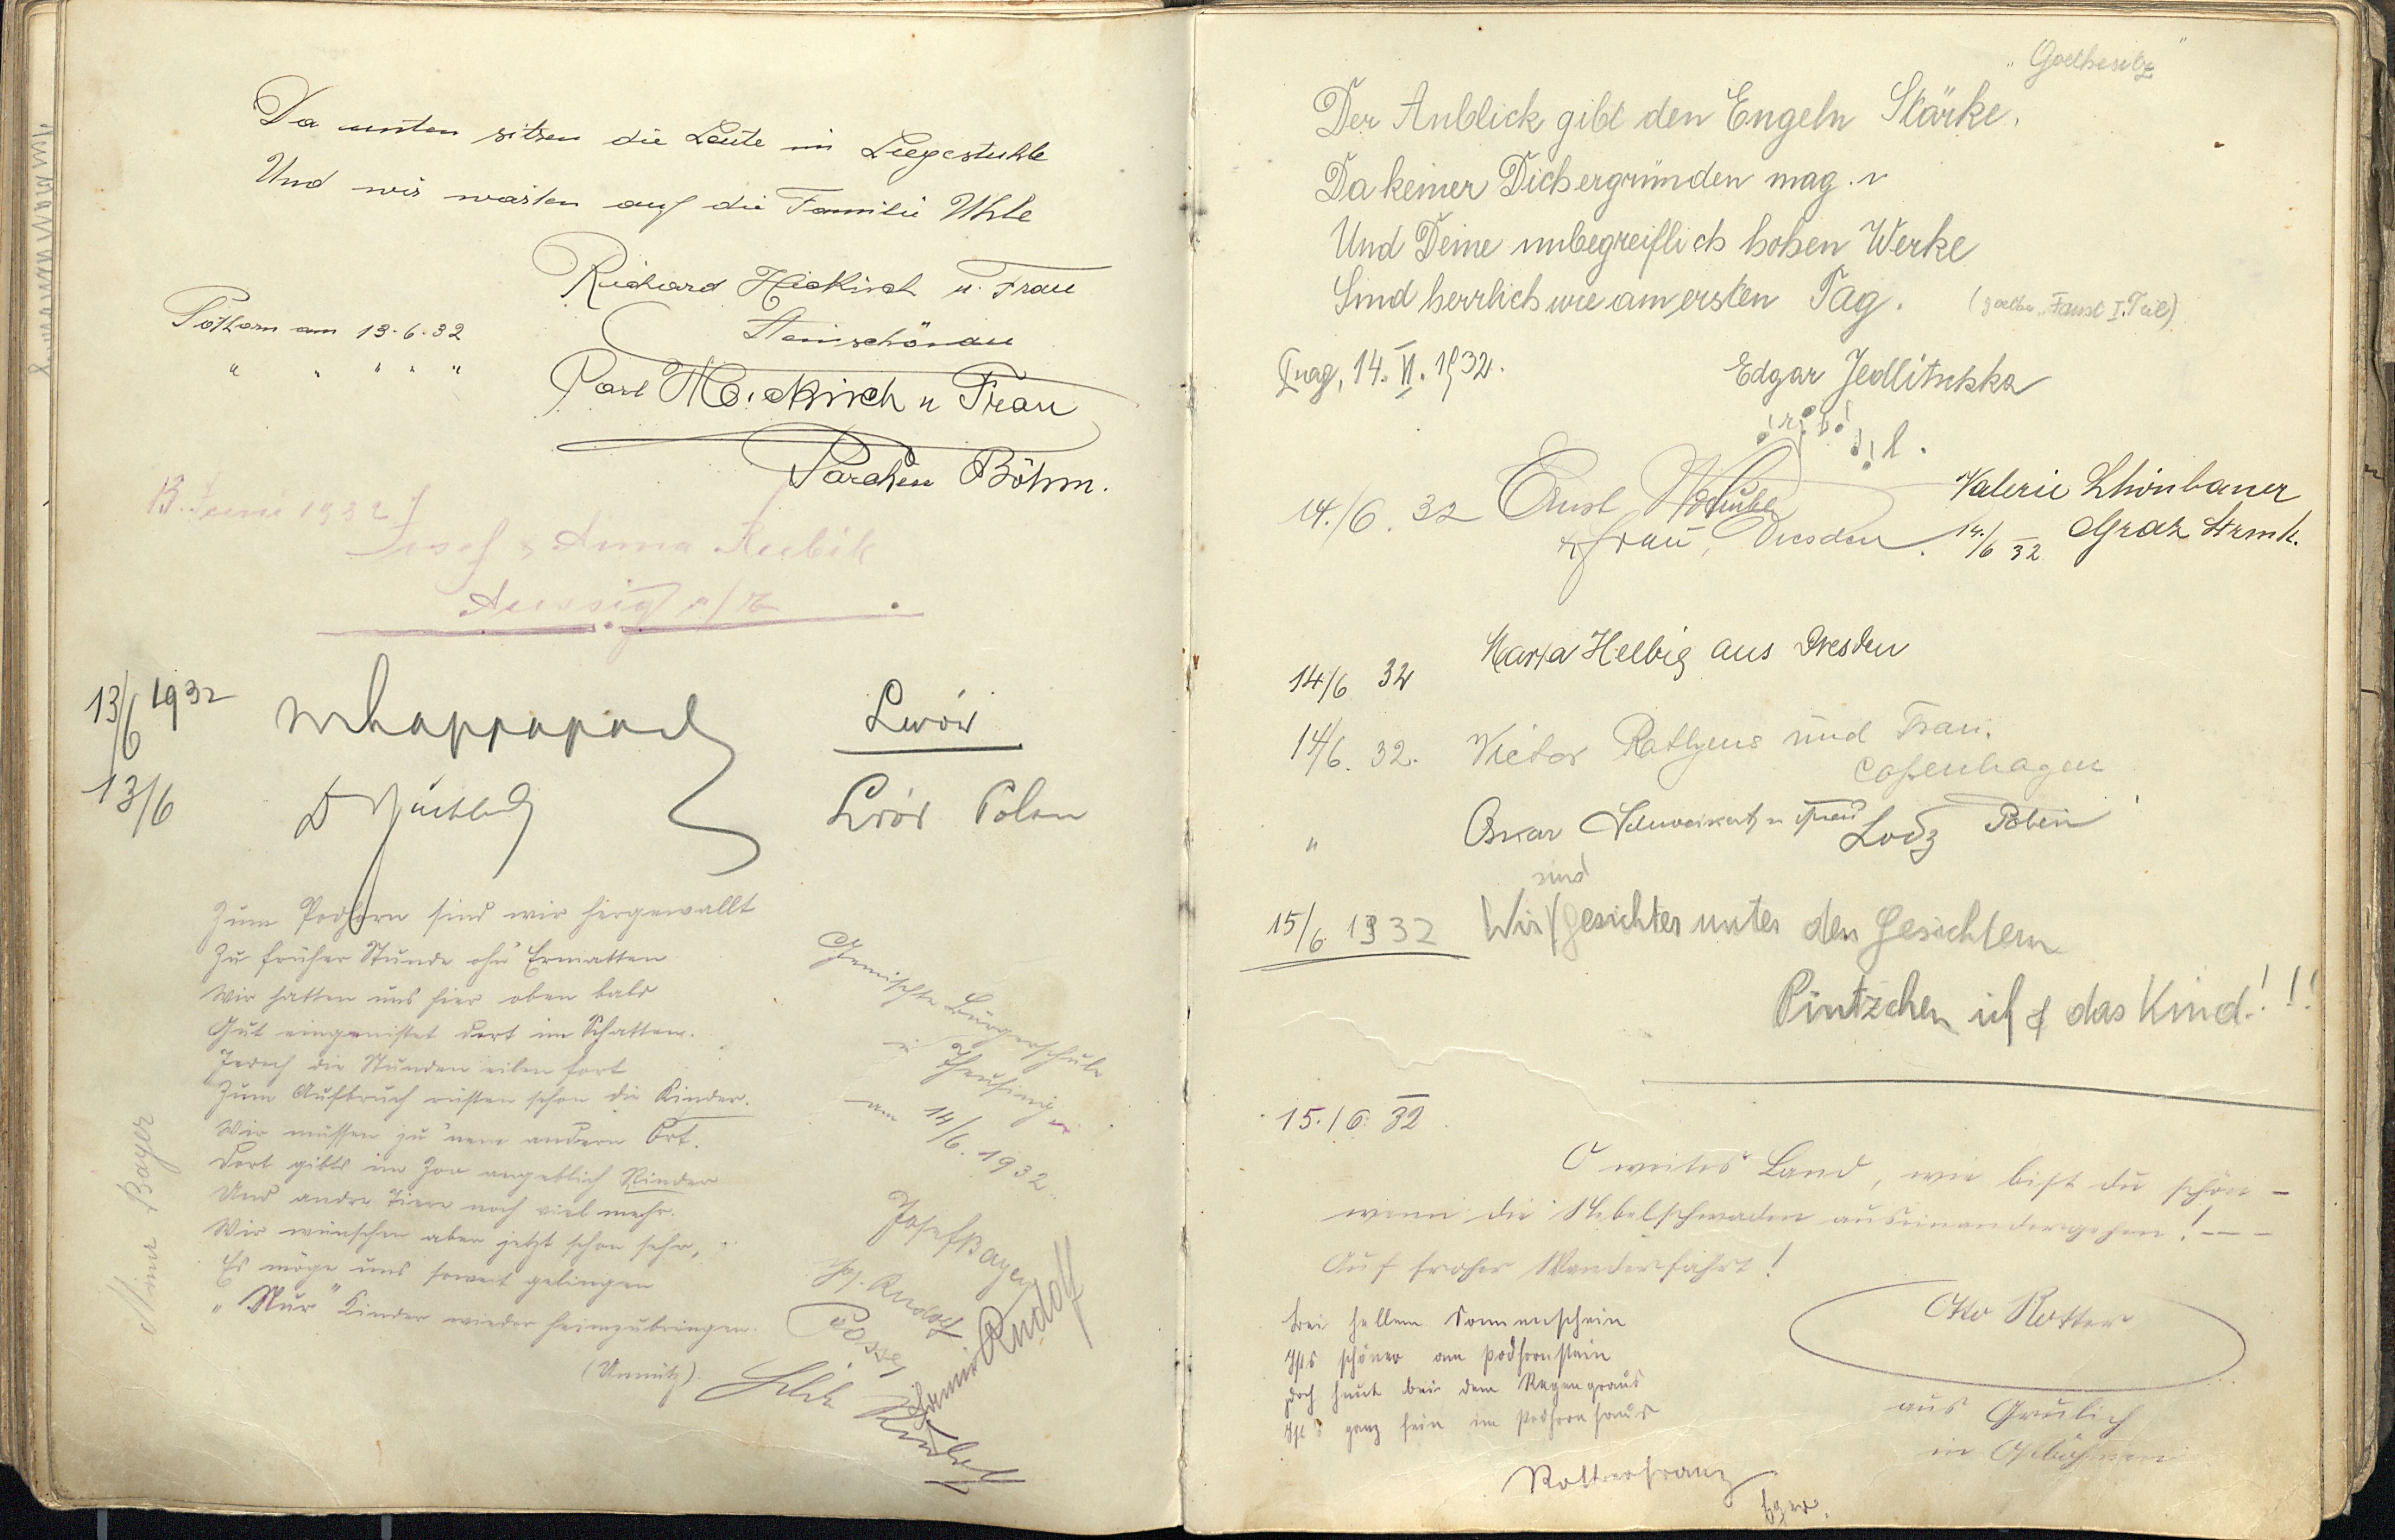 Da unten sitzen die Leute im Liegestuhle
Und wir warten auf die Familie Uhle
Richard Hickisch u. Frau
Steinschönau
Pothorn am 13.6.32
" " " " "
Karl Hickisch u Frau
Parchen Böhm.
13. Juni 1932
Josef & Anna Kubik
Aussig a/E
13/6 1932
Lwów
13/6
Lwów Polen
Zum Podhorn sind wir hergewallt
Zu früher Stunde ohn' Ermatten
Wir hatten uns hier oben bald
Gut eingenistet dort im Schatten.
Jedoch die Stunden eilen fort
Zum Aufbruch rüsten schon die Kinder.
Wir müssen zu 'nem andern Ort.
Dort gibts im Zoo angeblich Rinder
Und andre Tiere noch viel mehr.
Wir wünschen aber jetzt schon sehr,
Es möge uns soweit gelingen
"Nur" Kinder wieder heimzubringen.
Gemischte Bürgerschule
in Theusing
am 14/6. 1932
Josef Bayer
Jos. Rudolf
Rudolf
Mina Bayer
"Goethesitz"
Der Anblick gibt den Engeln Stärke,
Da keiner Dich ergründen mag.
Und Deine unbegreiflich hohen Werke
Sind herrlich wie am ersten Tag.
(Goethe, Faust I. Teil)
Prag, 14. VI. 1932.
Edgar Jedlitschka
14./6. 32 Ernst
& Frau, Dresden.
Valerie Schönbauer
14./6 32 Graz Strmk.
14/6 32 Marya Helbig aus Dresden
14/6. 32. Victor Rathjens und Frau.
Copenhagen
" Oskar Schweikert u Frau Lodz Polen
15/6. 1932 Wir sind Gesichter unter den Gesichtern
Pintzchen ich & das Kind!!!
15./6. 32
O weites Land, wie bist du schön –
wenn die Nebelschwaden auseinandergehen! – – –
Auf froher Wanderfahrt!
Otto Rotter
aus Grulich
in Ostböhmen
Bei hellem Sonnenschein
Ists schöner am Podhornstein
doch heut bei dem Regengraus
Ist's ganz fein im Podhornhaus
Rotter Franz
Eger.